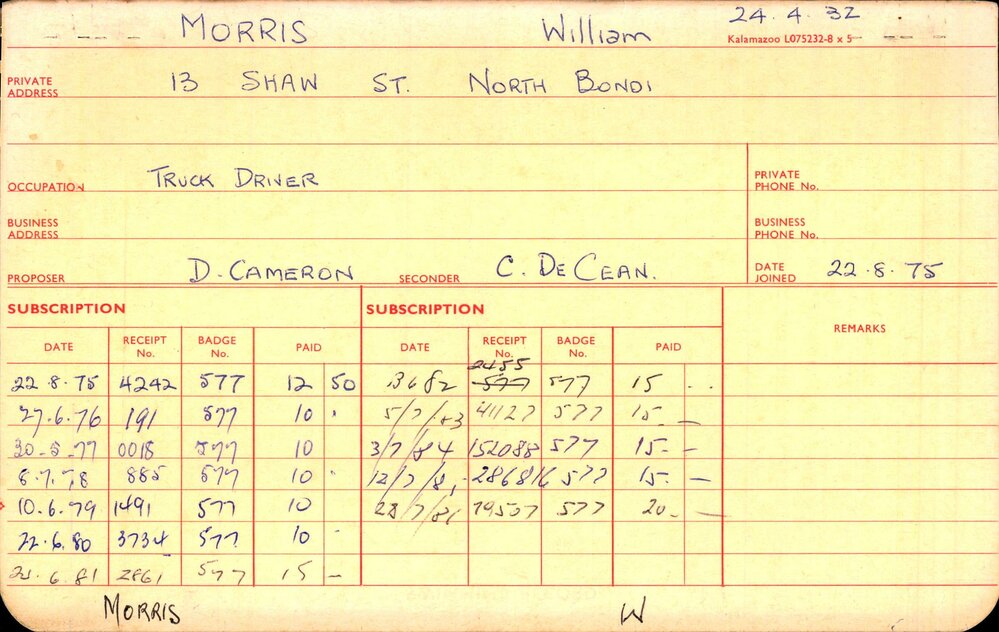 MORRIS William 24.4.32
Kalamazoo L075232-8 x 5
PRIVATE ADDRESS 13 SHAW ST. NORTH BONDI
OCCUPATION TRUCK DRIVER PRIVATE PHONE No.
BUSINESS ADDRESS BUSINESS PHONE No.
PROPOSER D. CAMERON SECONDER C. DE CEAN. DATE JOINED 22.8.75
SUBSCRIPTION SUBSCRIPTION REMARKS
DATE RECEIPT No. BADGE No. PAID DATE RECEIPT No. BADGE No. PAID
2455
22.8.75 4242 577 12 50 13682 577 577 15 . .
27.6.76 191 577 10 . 5/7/83 41127 577 15 —
30-5-77 0018 577 10 3/7/84 152088 577 15 - —
6.7.78 885 577 10 12/7/8 286816 577 15 - —
10.6.79 1491 577 10 28/7/86 577 20 - —
22.6.80 3734 577 10 -
6.81 2861 577 15 —
MORRIS W